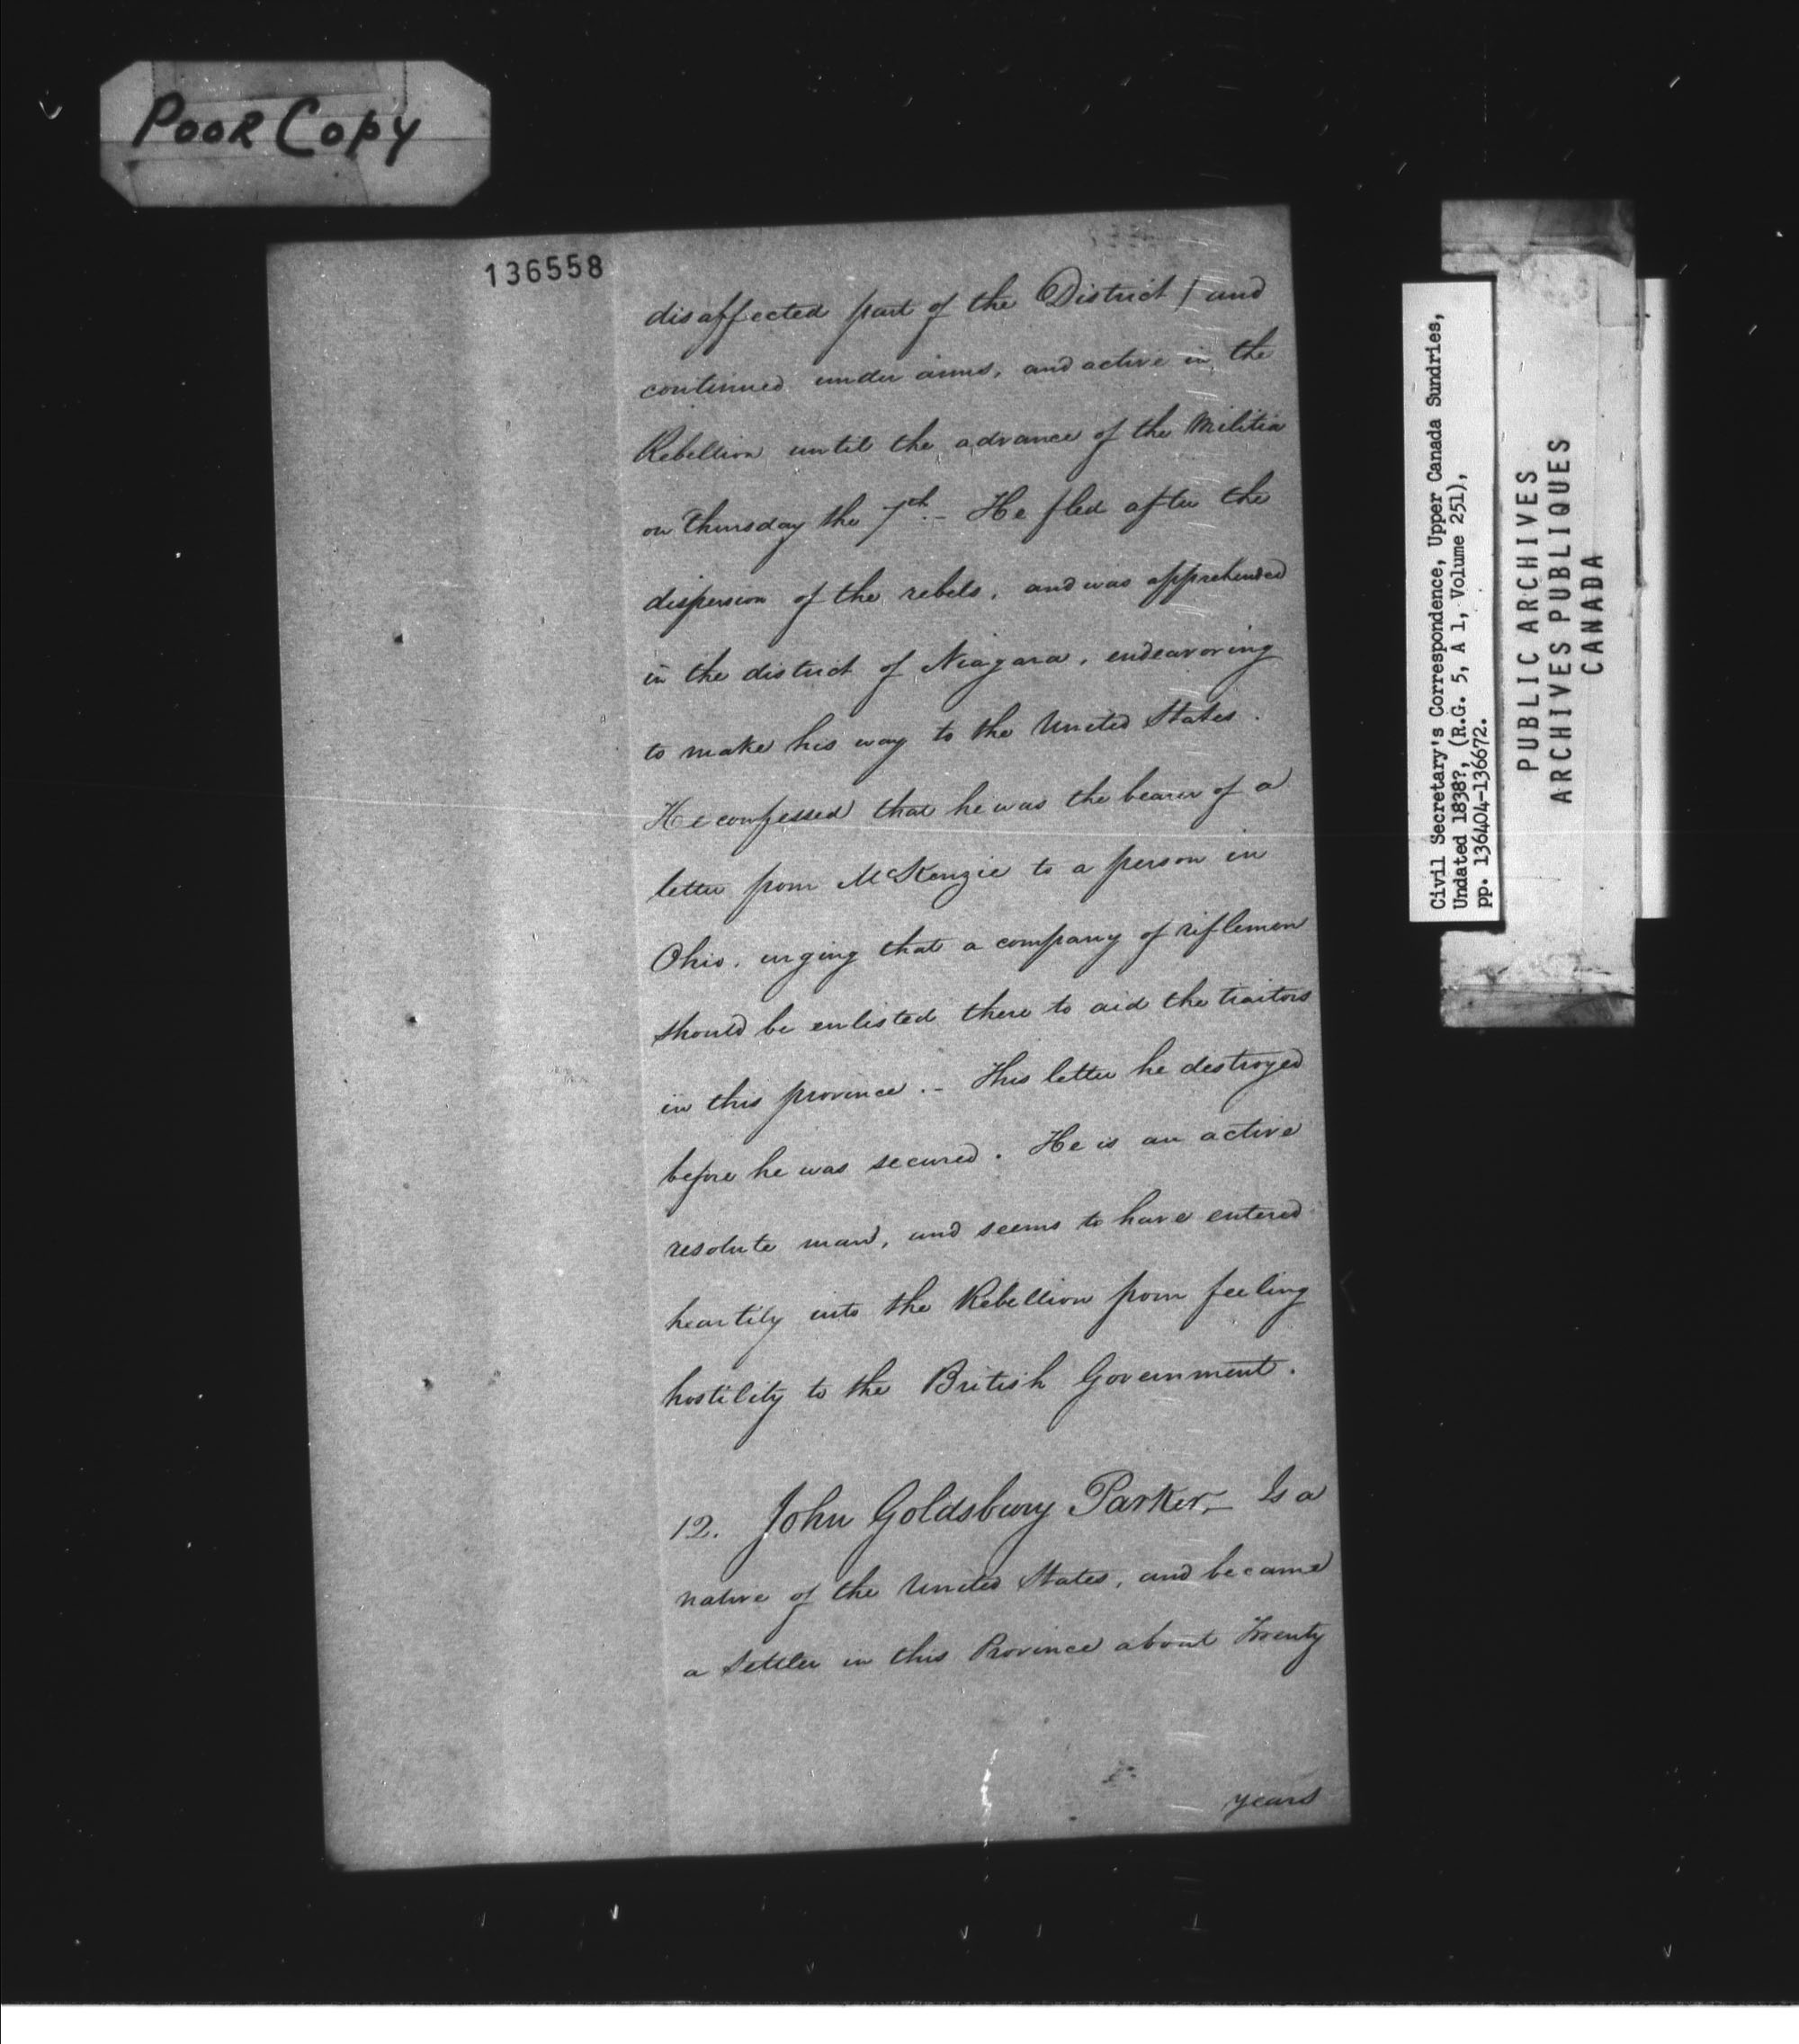 Poor Copy
136558
disaffected part of the District / and
continued under arms, and active in the
Rebellion until the advance of the Militia
on Thursday the 7th. – He fled after the
dispersion of the rebels, and was apprehended
in the district of Niagara, endeavoring
to make his way to the United States.
He confessed that he was the bearer of a
letter from McKenzie to a person in
Ohio, urging that a company of riflemen
should be enlisted there to aid the traitors
in this province. – This letter he destroyed
before he was secured. He is an active
resolute man, and seems to have entered
heartily into the Rebellion from feeling
hostility to the British Government.
12. John Goldsbury Parker, – Is a
native of the United States, and became
a Settler in this Province about Twenty
years
Civil Secretary's Correspondence, Upper Canada Sundries,
Undated 1838?, (R.G. 5, A 1, Volume 251),
pp. 136404-136672.
PUBLIC ARCHIVES
ARCHIVES PUBLIQUES
CANADA